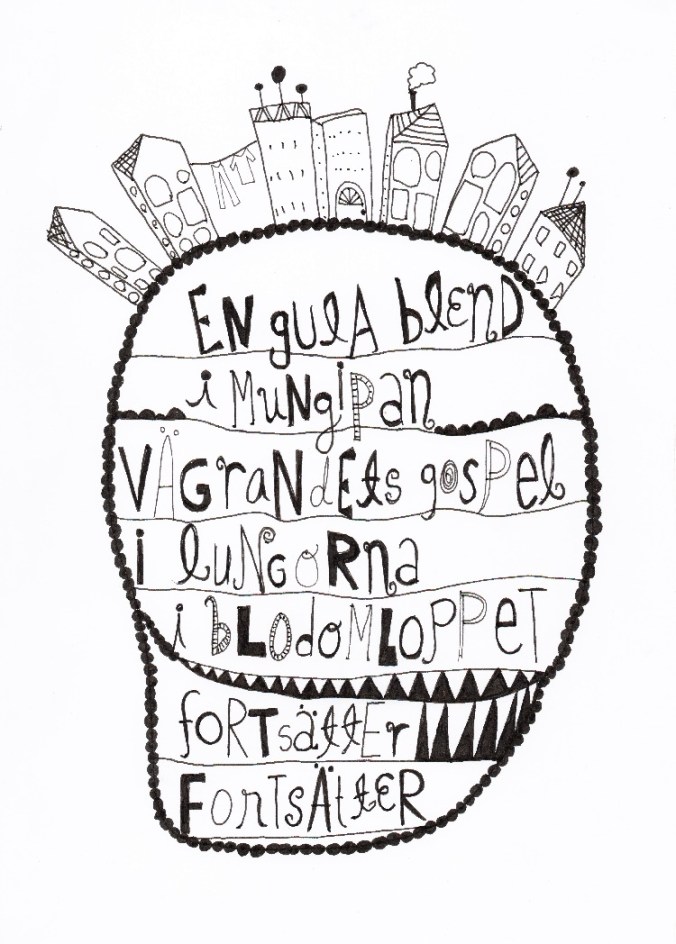 EN gulA blenD
i MuNgipan
VÄGraNdEts gospel
i luNgoRna
i bLOdoMLoppeT
foRTsätter
FonTsÄttER